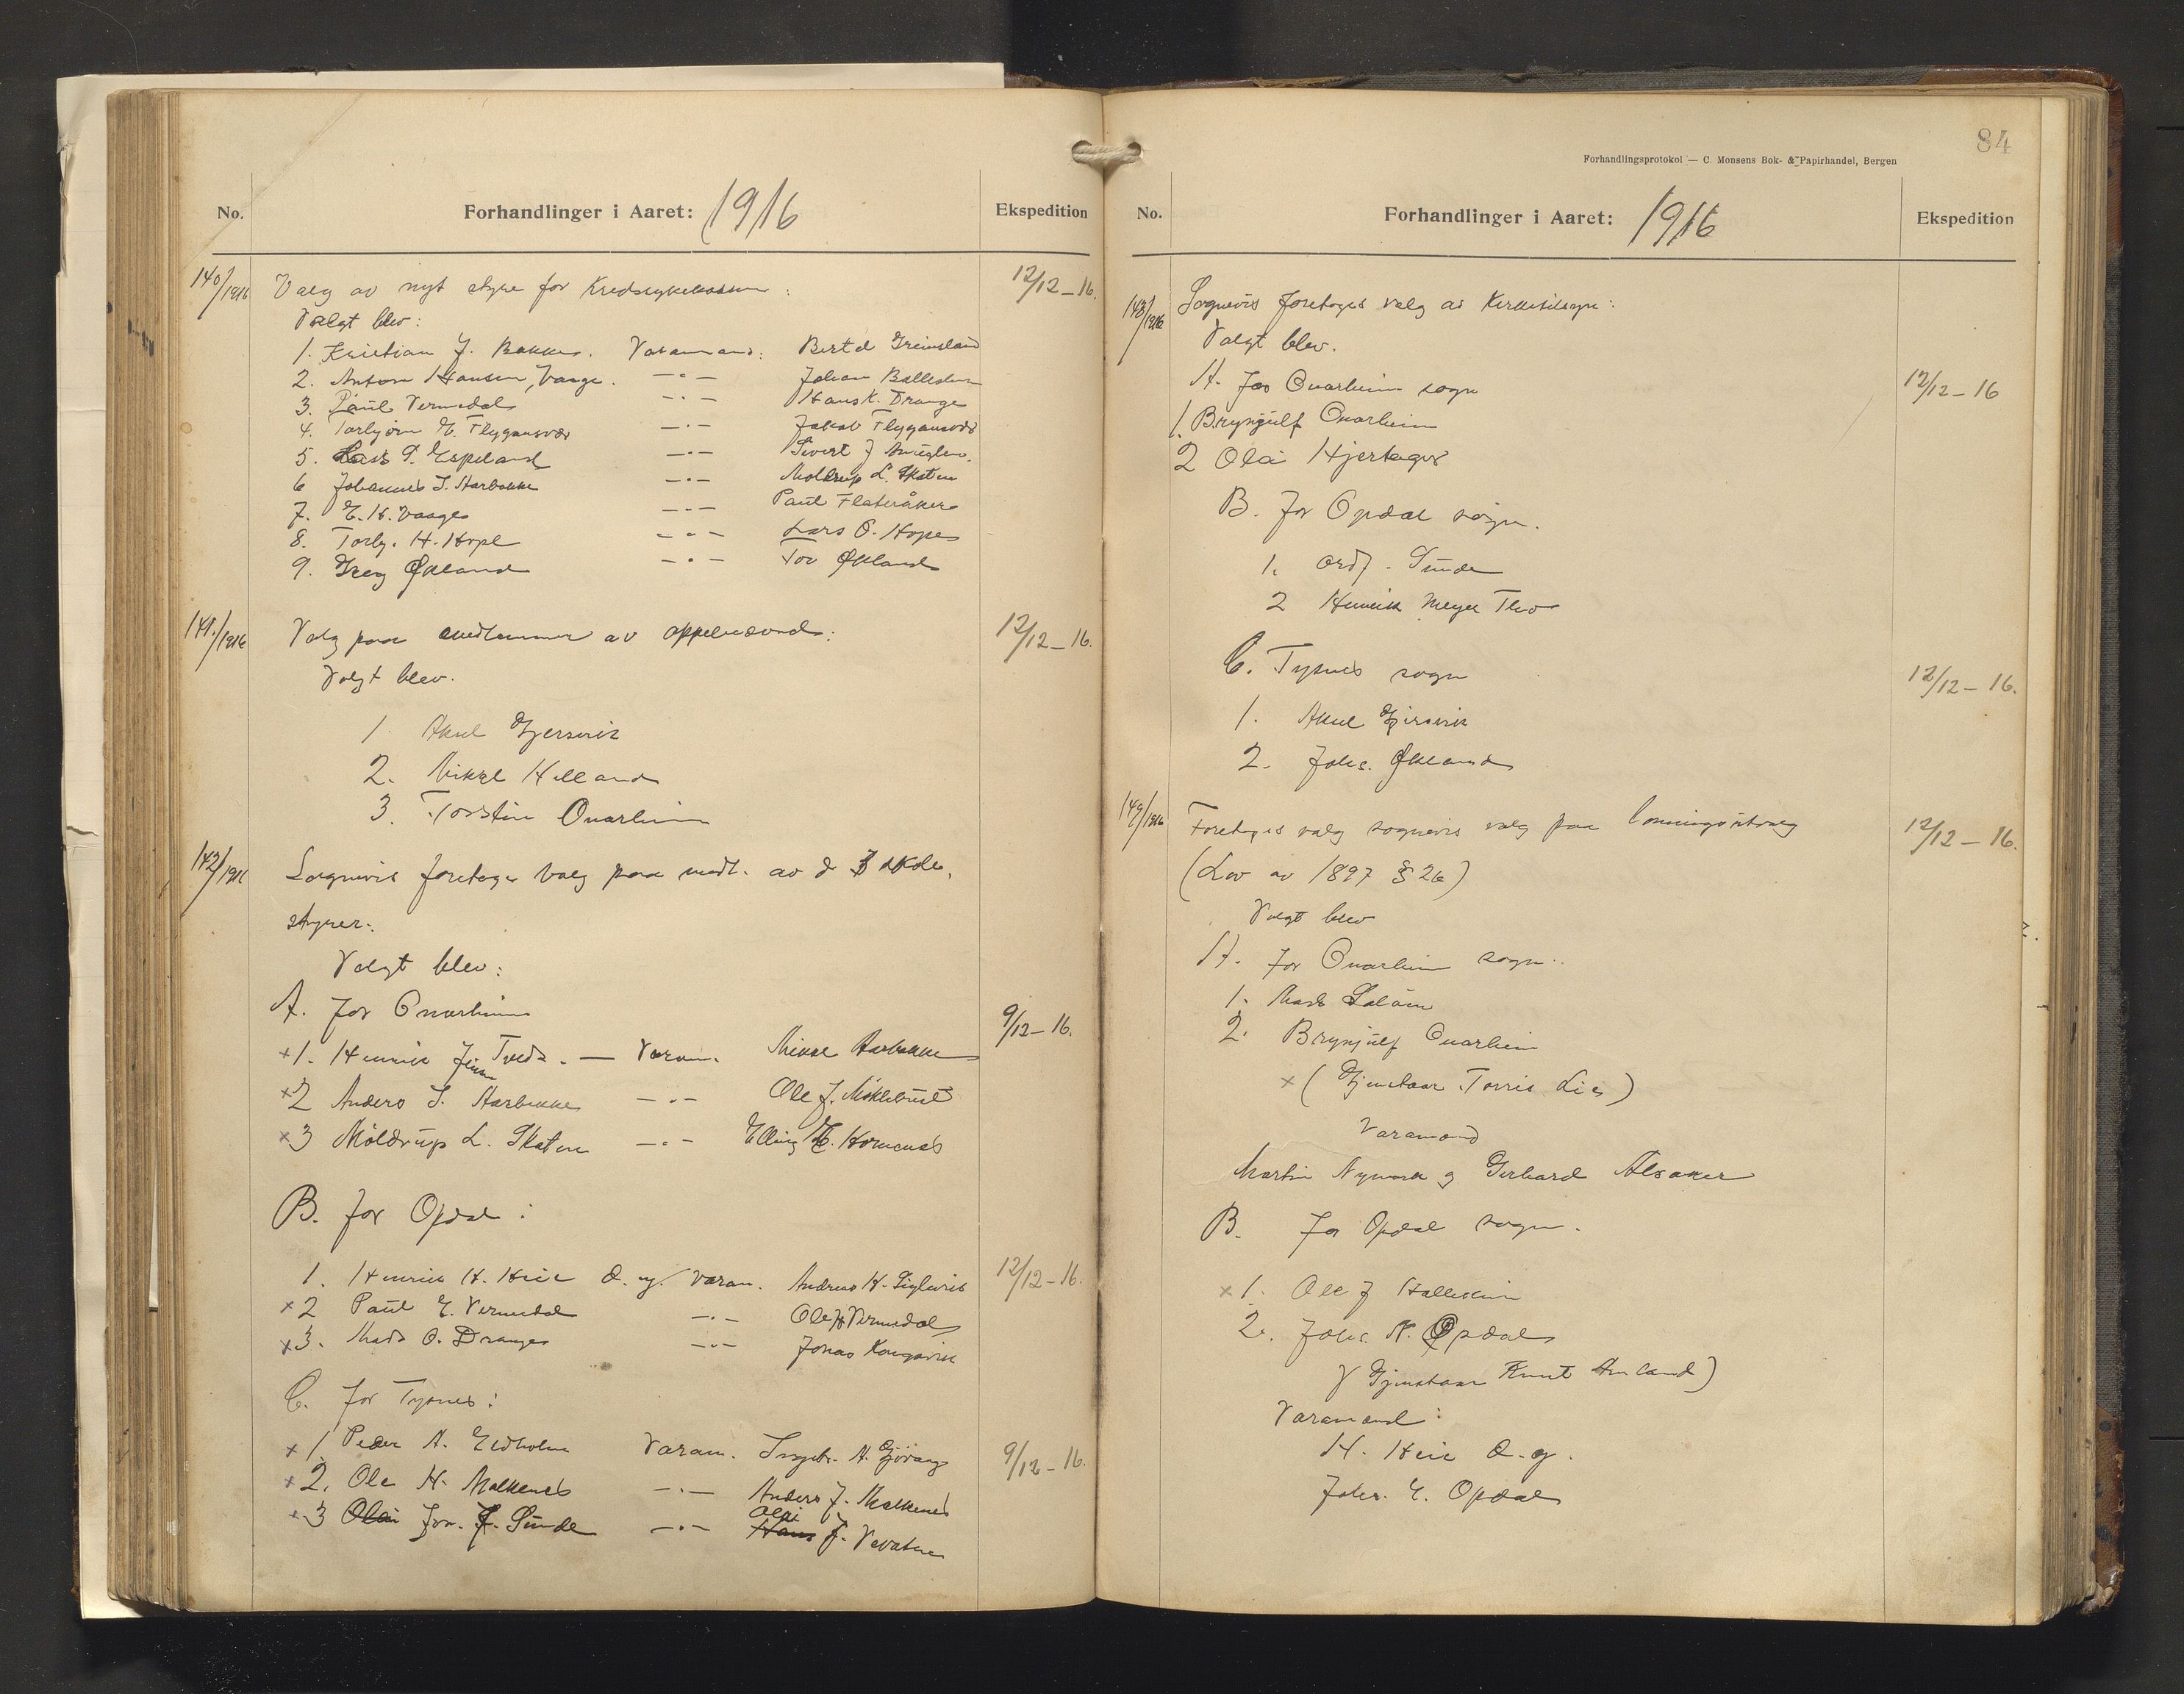 No.
Forhandlinger i Aaret: 1916
Ekspedition
140/1916 Valg av nyt styre for Kredssykekassen: 12/12-16.
Valgt blev:
1. Kristian J. Bakke. Varamand: Bertel Greinsland
2. Anton Hansen, Vaage. —"— Johan
3. Paul Vermedal —"— Hans K. Drange
4. Torbjørn E. Flygansvær —"— Jakob Flygansvær
5. Lars P. Espeland —"— Sivert J
6 Johannes J. Aarbakke —"— Moldrup L. Skaten
7. E. H. Vaage —"— Paul Flateråker
8. Torbj. H. Hope —"— Lars O. Hope
9. Økland —"— Tov Økland
141./1916 Valg paa medlemmer av appelnævnd: 12/12-16.
Valgt blev.
1 Aksel Gjersvik
2. Mikkel Helland
3. Torstein Onarheim
142/1916 Sognevis foretages valg paa medl. av de 3 skole-
styrer:
Valgt blev:
A. for Onarheim 9/12-16.
×1. Henrik Tveds. — Varam. Mikkel Aarbakke
×2 Anders J. Aarbakke —"— Ole J. Möklebust
×3 Möldrup L. Skaten —"— Elling E. Hornenes
B. for Opdal:
1. Henrik H. Heie d. y. Varam. Andreas H. 12/12-16.
×2 Paul E. Vermedal —"— Ole H Vermedal
×3. Mads O. Drange —"— Jonas Kongsvik
C. for Tysnes:
×1 Peder A. Eidholm Varam. Ingebr. A. Gjövaag 9/12-16.
×2. Ole H. Malkenes —"— Anders J. Malkenes
Olai
×3 Olai Jon. J. Sunde —"— Hans J. Vevatne
84
Forhandlingsprotokol — C. Monsens Bok- & Papirhandel, Bergen
No.
Forhandlinger i Aaret: 1916
Ekspedition
143/1916 Sognevis foretages valg av Kirketilsyn:
Valgt blev.
A. for Onarheim sogn 12/12-16
1. Brynjulf Onarheim
2 Ola Hjertager
B. for Opdal sogn.
1. Ordf. Sunde
2 Henrik Meyer Teo
C. Tysnes sogn 12/12-16.
1. Aksel Gjersvik
2. Johs. Økland
149/1916 Foretages valg sognevis valg paa lönningsutvalg 12/12-16.
(Lov av 1897 § 26)
Valgt blev
A. for Onarheim sogn.
1. Mads
2. Brynjulf Onarheim
×(Gjenstaar Torris Lie)
Varamænd
Martin Nymark og Gerhard Alsaker
B. for Opdal sogn.
×1. Ole J Hallekim
2. Johs. N. Opdal
(Gjenstaar Knut)
Varamænd:
H. Heie d. y.
Johs. E. Opdal